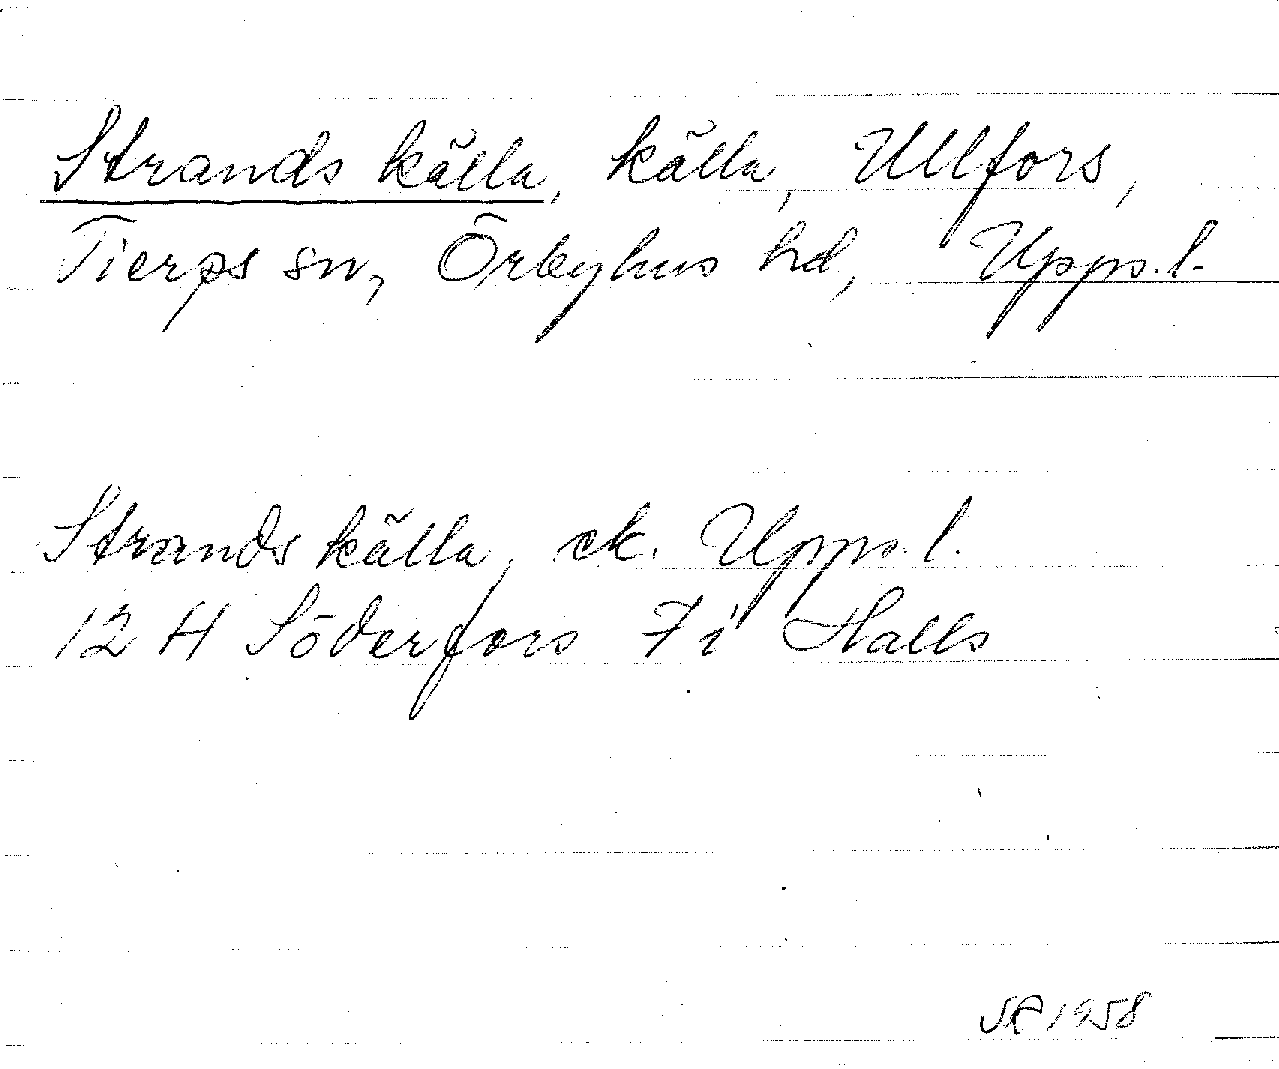 Strands källa, källa, Ullfors,
Tierps sn, Örbyhus hd, Upps. l.
Strands källa, ek. Upps. l.
12 H Söderfors 7 i Halls
1958